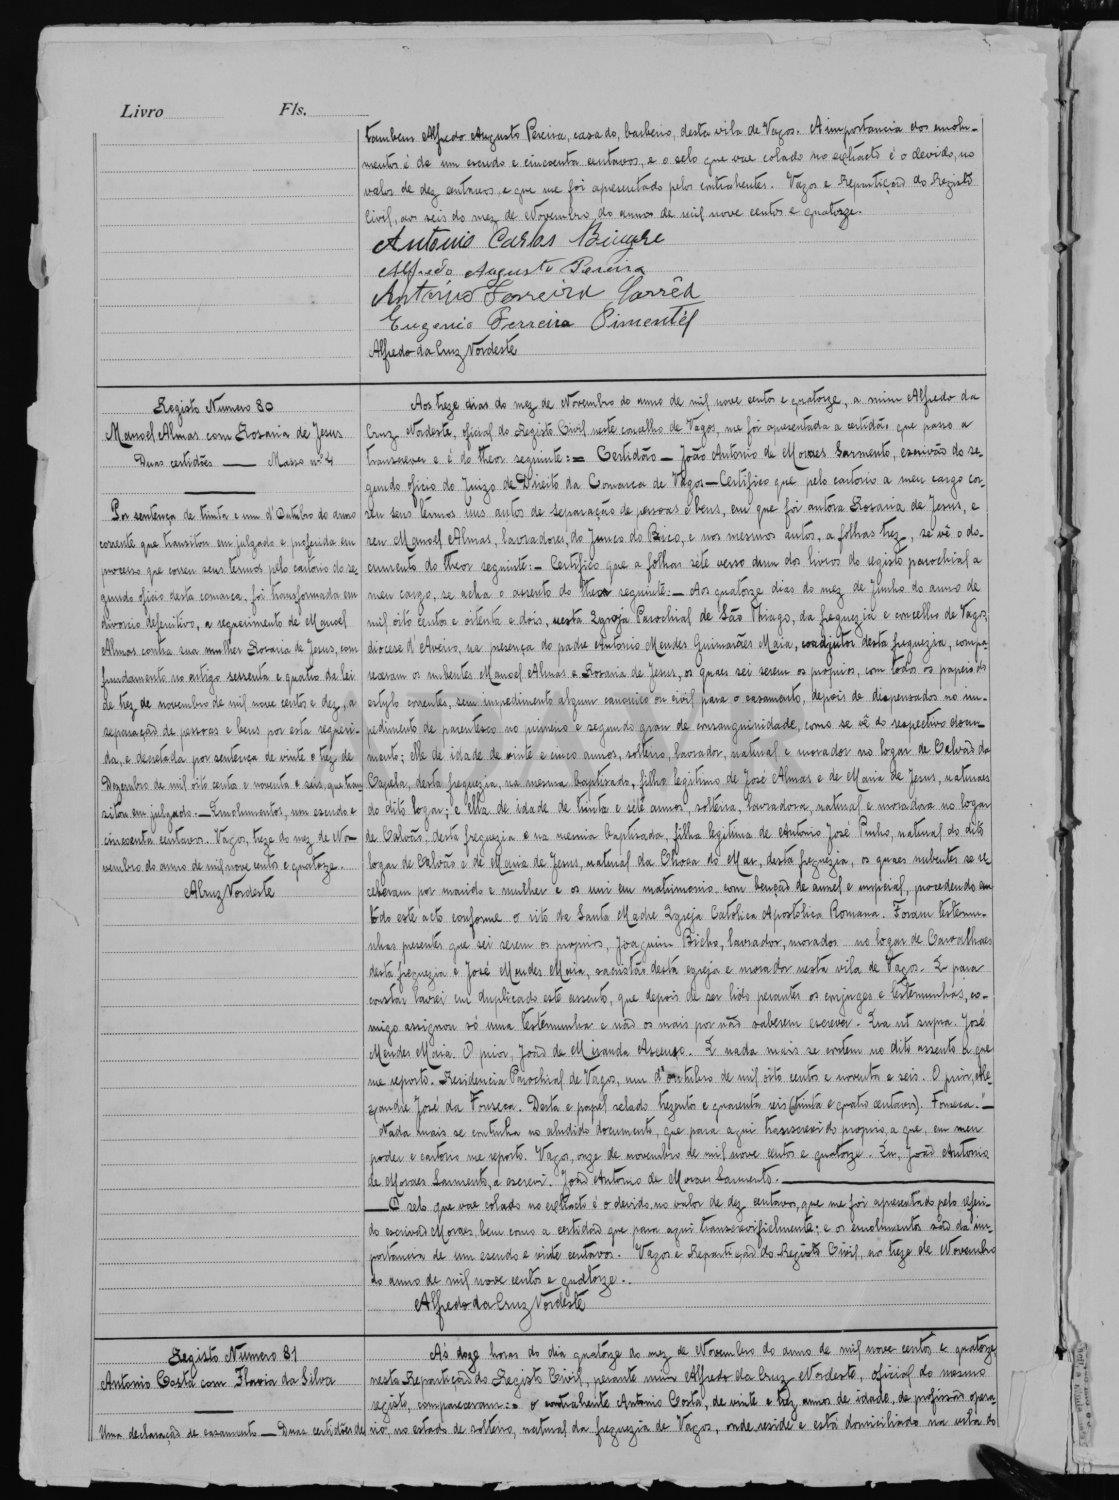 Livro Fls.
tambem Alfredo Augusto Pereira, casado, barbeiro, desta vila de Vagos. A importancia dos emolu-
mentos é de um escudo e cincoenta centavos, e o selo que vae colado no extracto é o devido, no
valor de dez centavos, e que me foi apresentado pelos contrahentes. Vagos e Repartição do Registo
Civil, aos seis do mez de Novembro do anno de mil nove centos e quatorze.
Antonio Carlos
Alfredo Augusto Pereira
Antonio Ferreira
Eugenio Ferreira Pimentel
Alfredo da Cruz Nordeste
Registo Numero 80
Manoel Almas com Rosaria de Jesus
Duas certidões — Masso nº 4
Por sentença de trinta e um d'Outubro do anno
corrente que transitou em julgado e proferida em
processo que correu seus termos pelo cartorio do se-
gundo oficio desta comarca, foi transformada em
divorcio definitivo, a requerimento de Manoel
Almas contra sua mulher Rosaria de Jesus, com
fundamento no artigo sessenta e quatro da lei
de trez de novembro de mil nove centos e dez, a
separação de pessoas e bens por esta requeri-
da, e decretada por sentença de vinte e trez de
Dezembro de mil oito centos e noventa e seis, que tran
sitou em julgado. — Emolumentos, um escudo e
cincoenta centavos. Vagos, treze do mez de No-
vembro do anno de mil nove centos e quatorze.
A Cruz Nordeste
Aos treze dias do mez de Novembro do anno de mil nove centos e quatorze, a mim Alfredo da
Cruz Nordeste, oficial do Registo Civil neste concelho de Vagos, me foi apresentada a certidão que passo a
transcrever e é do theor seguinte: = Certidão — João Antonio de Moraes Sarmento, escrivão do se-
gundo oficio do Juizo de Direito da Comarca de Vagos — Certifico que pelo cartorio a meu cargo cor-
reu seus termos uns autos de separação de pessoas e bens, em que foi autora Rosaria de Jesus, e
reu Manoel Almas, lavradores, do Junco do Bico, e nos mesmos autos, a folhas trez, se vê o do-
cumento do theor seguinte: — Certifico que a folhas sete verso dum dos livros do registo parochial a
meu cargo, se acha o assento do theor seguinte: — Aos quatorze dias do mez de Junho do anno de
mil oito centos e oitenta e dois, nesta Igreja Parochial de São Thiago, da freguezia e concelho de Vagos,
diocese d'Aveiro, na presença do padre Antonio Mendes Guimarães Maia, coadjutor desta freguezia, compa-
receram os nubentes Manoel Almas e Rosaria de Jesus, os quaes sei serem os proprios, com todos os papeis do
estylo correntes, sem impedimento algum canonico ou civil para o casamento, depois de dispensados no im-
pedimento de parentesco no primeiro e segundo grau de consanguinidade, como se vê do respectivo docu-
mento; elle de idade de vinte e cinco annos, solteiro, lavrador, natural e morador no logar de Calvão da
Capela, desta freguezia, na mesma baptisado, filho legitimo de José Almas e de Maria de Jesus, naturaes
do dito logar; e ella de idade de trinta e sete annos, solteira, lavradora, natural e moradora no logar
de Calvão, desta freguezia e na mesma baptisada, filha legitima de Antonio José Pinho, natural do dito
logar de Calvão e de Maria de Jesus, natural da Choca do Mar, desta freguezia, os quaes nubentes se re-
ceberam por marido e mulher e os uni em matrimonio com benção de annel e nupcial, procedendo em
todo este acto conforme o rito da Santa Madre Igreja Catolica Apostolica Romana. Foram testemu-
nhas presentes que sei serem os proprios, Joaquim Bicho, lavrador, morador no logar de Carvalhaes
desta freguezia e José Mendes Maia, sacristão desta egreja e morador nesta vila de Vagos. E para
constar lavrei em duplicado este assento, que depois de ser lido perante os conjuges e testemunhas, co-
migo assignou só uma testemunha e não os mais por não saberem escrever. Era ut supra. José
Mendes Maia. O prior, João de Miranda Ascenso. E nada mais se contem no dito assento a que
me reporto. Residencia Parochial de Vagos, um d'outubro de mil oito centos e noventa e seis. O prior, Ale-
xandre José da Fonseca. Desta e papel selado trezentos e quarenta reis (trinta e quatro centavos). Fonseca." —
Nada mais se continha no aludido documento, que para aqui transcrevi do proprio, a que, em meu
poder e cartorio me reporto. Vagos, onze de novembro de mil nove centos e quatorze. Eu, João Antonio
de Moraes Sarmento, a escrevi. João Antonio de Moraes Sarmento. —
— O selo que vae colado no extracto é o devido, no valor de dez centavos, que me foi apresentado pelo referi-
do escrivão Moraes, bem como a certidão que para aqui transcrevi fielmente; e os emolumentos são da im-
portancia de um escudo e vinte centavos. Vagos e Repartição do Registo Civil, aos treze de Novembro
do anno de mil nove centos e quatorze.
Alfredo da Cruz Nordeste
Registo Numero 81
Antonio Costa com Flavia da Silva
Uma declaração de casamento — Duas certidões de
Ás doze horas do dia quatorze do mez de Novembro do anno de mil nove centos e quatorze
nesta Repartição do Registo Civil, perante mim Alfredo da Cruz Nordeste, oficial do mesmo
registo, compareceram: = o contrahente Antonio Costa, de vinte e trez annos de idade, de profissão opera-
rio, no estado de solteiro, natural da freguezia de Vagos, onde reside e está domiciliado na vila de